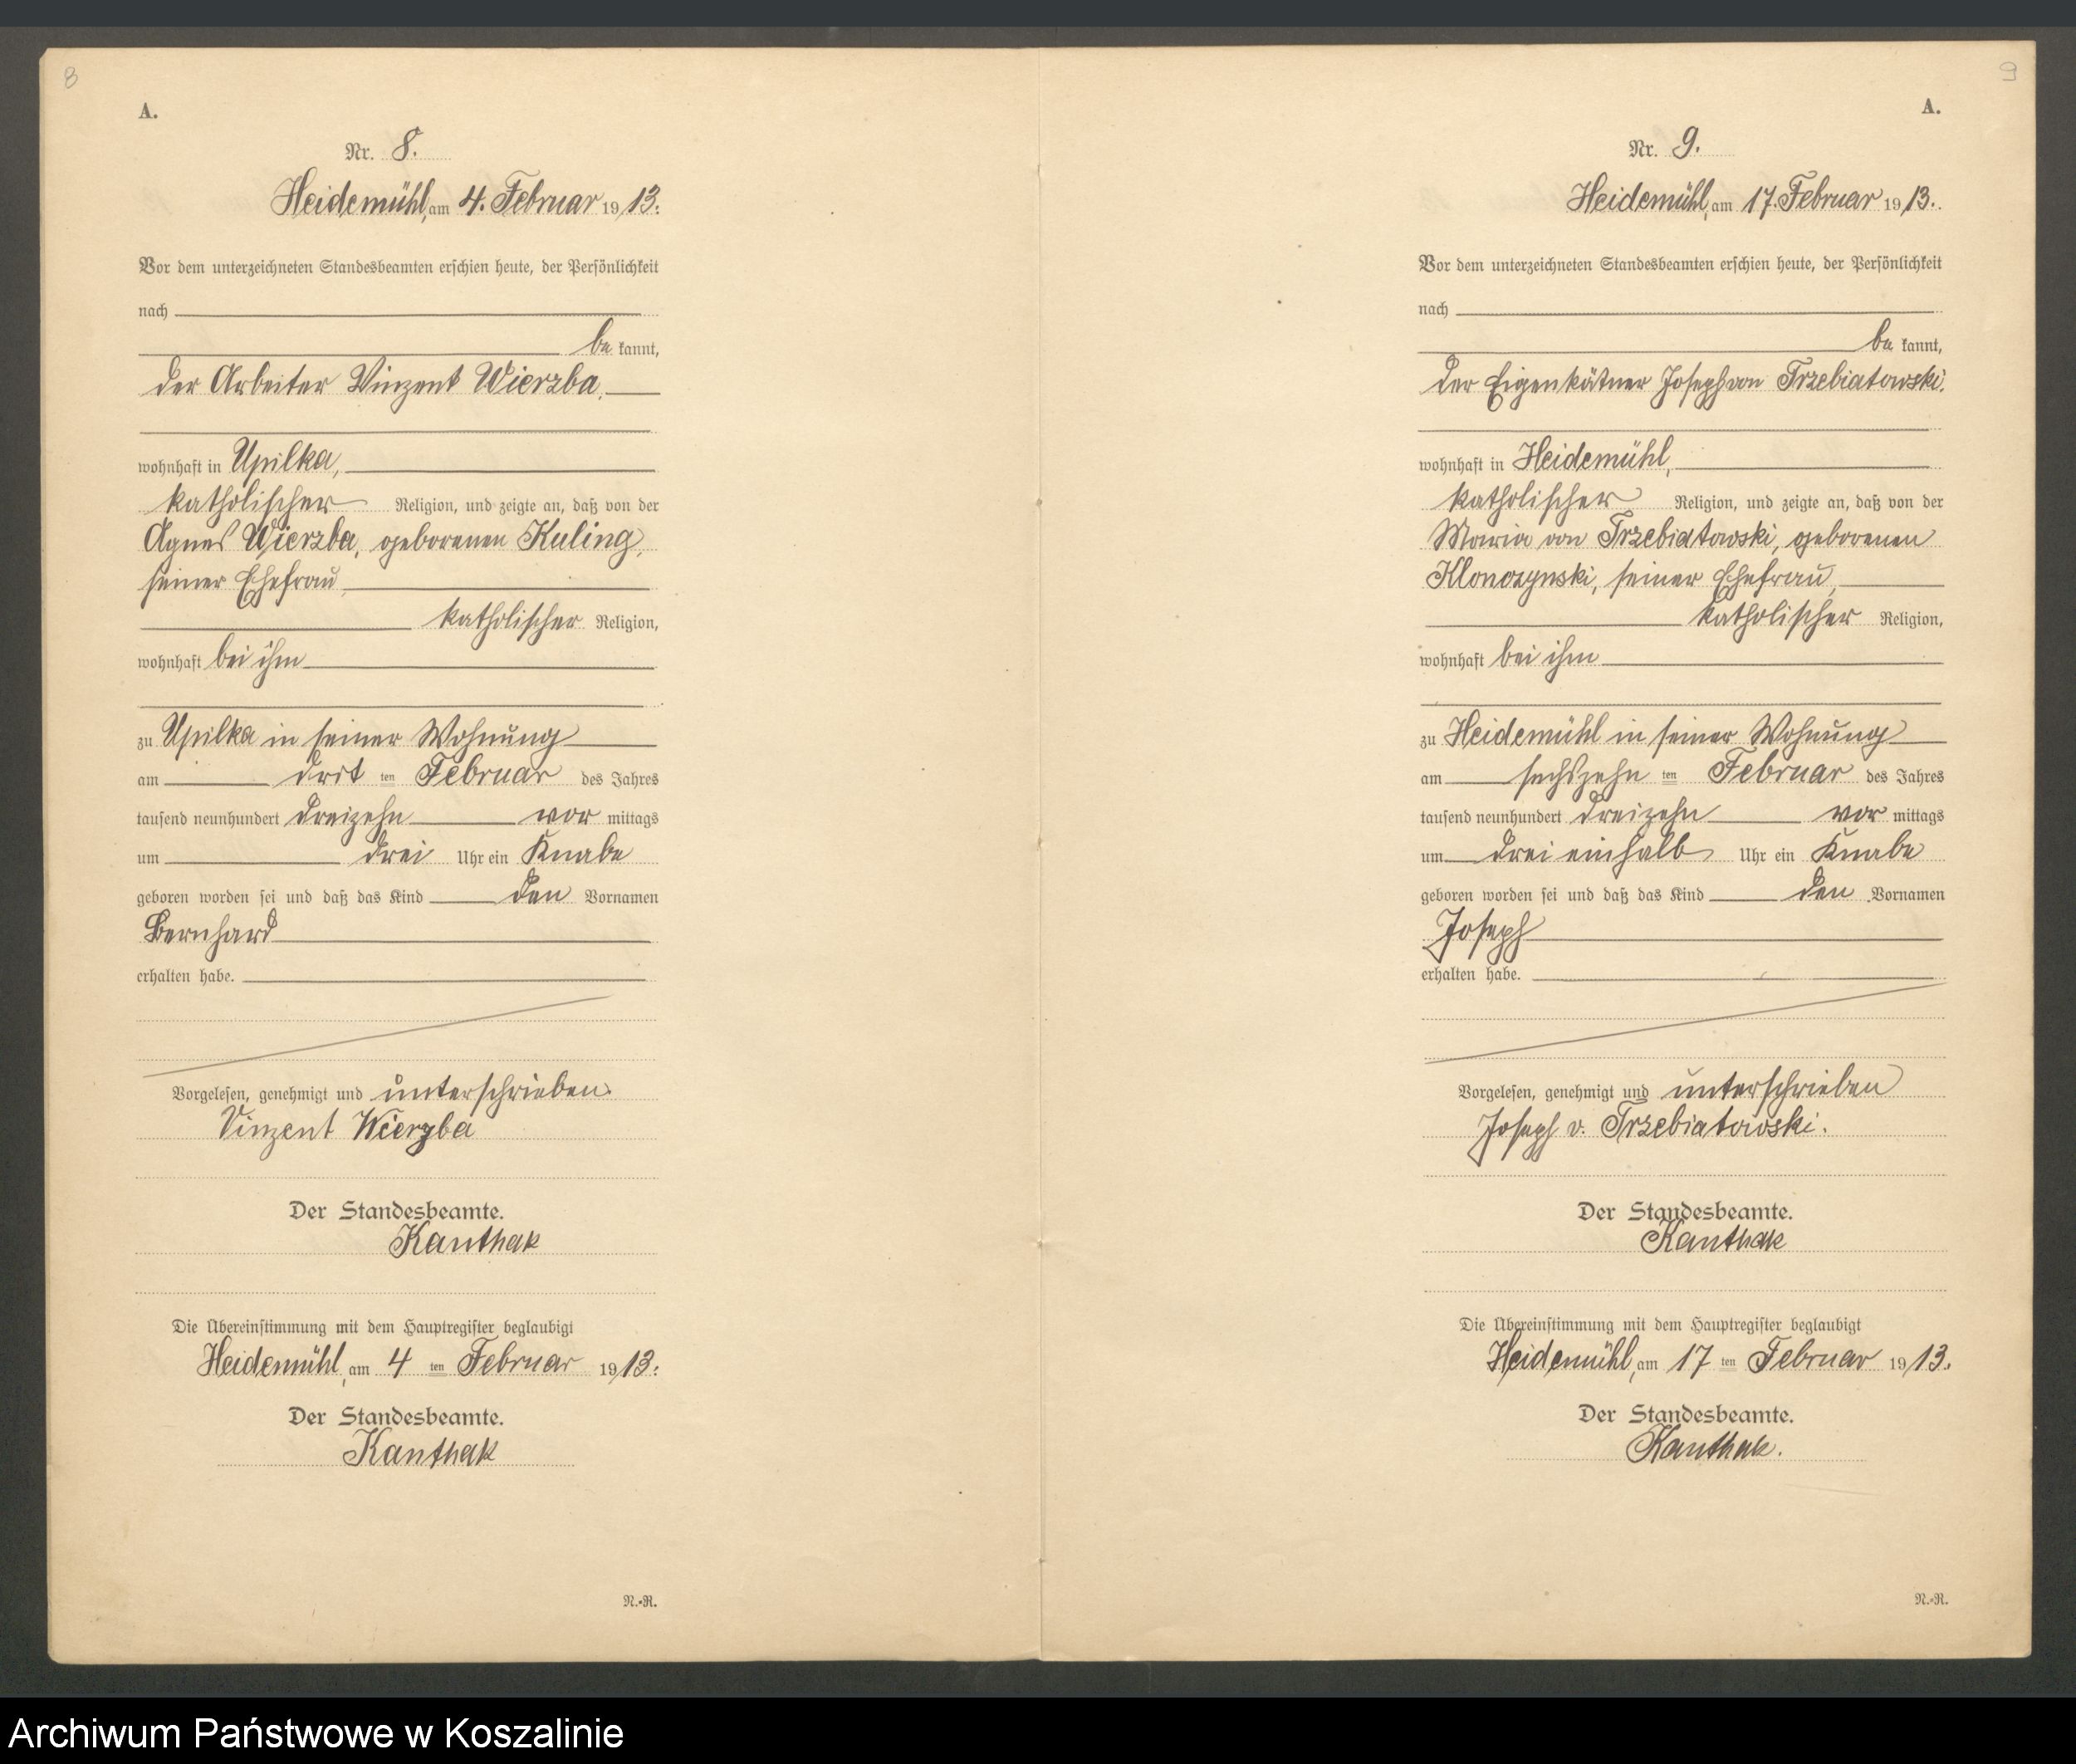 8
A.
Nr. 8.
Heidemühl, am 4. Februar 1913.
Vor dem unterzeichneten Standesbeamten erschien heute, der Persönlichkeit
nach
be kannt,
der Arbeiter Vinzent Wierzba,
wohnhaft in Upilka,
katholischer Religion, und zeigte an, daß von der
Agnes Wierzba, geborenen Kuling,
seiner Ehefrau,
katholischer Religion,
wohnhaft bei ihm
zu Upilka in seiner Wohnung
am drit ten Februar des Jahres
tausend neunhundert dreizehn vor mittags
um drei Uhr ein Knabe
geboren worden sei und daß das Kind den Vornamen
Bernhard
erhalten habe.
Vorgelesen, genehmigt und unterschrieben.
Vinzent Wierzba
Der Standesbeamte.
Kanthak
Die Übereinstimmung mit dem Hauptregister beglaubigt
Heidemühl, am 4 ten Februar 1913.
Der Standesbeamte.
Kanthak
N.-R.
9
A.
Nr. 9.
Heidemühl, am 17. Februar 1913.
Vor dem unterzeichneten Standesbeamten erschien heute, der Persönlichkeit
nach
be kannt,
der Eigenkätner Joseph von Trzebiatowski,
wohnhaft in Heidemühl,
katholischer Religion, und zeigte an, daß von der
Maria von Trzebiatowski, geborenen
Klonczynski, seiner Ehefrau,
katholischer Religion,
wohnhaft bei ihm
zu Heidemühl in seiner Wohnung
am sechszehn ten Februar des Jahres
tausend neunhundert dreizehn vor mittags
um drei einhalb Uhr ein Knabe
geboren worden sei und daß das Kind den Vornamen
Joseph
erhalten habe.
Vorgelesen, genehmigt und unterschrieben
Joseph v. Trzebiatowski.
Der Standesbeamte.
Kanthak
Die Übereinstimmung mit dem Hauptregister beglaubigt
Heidemühl, am 17 ten Februar 1913.
Der Standesbeamte.
Kanthak.
N.-R.
Archiwum Państwowe w Koszalinie